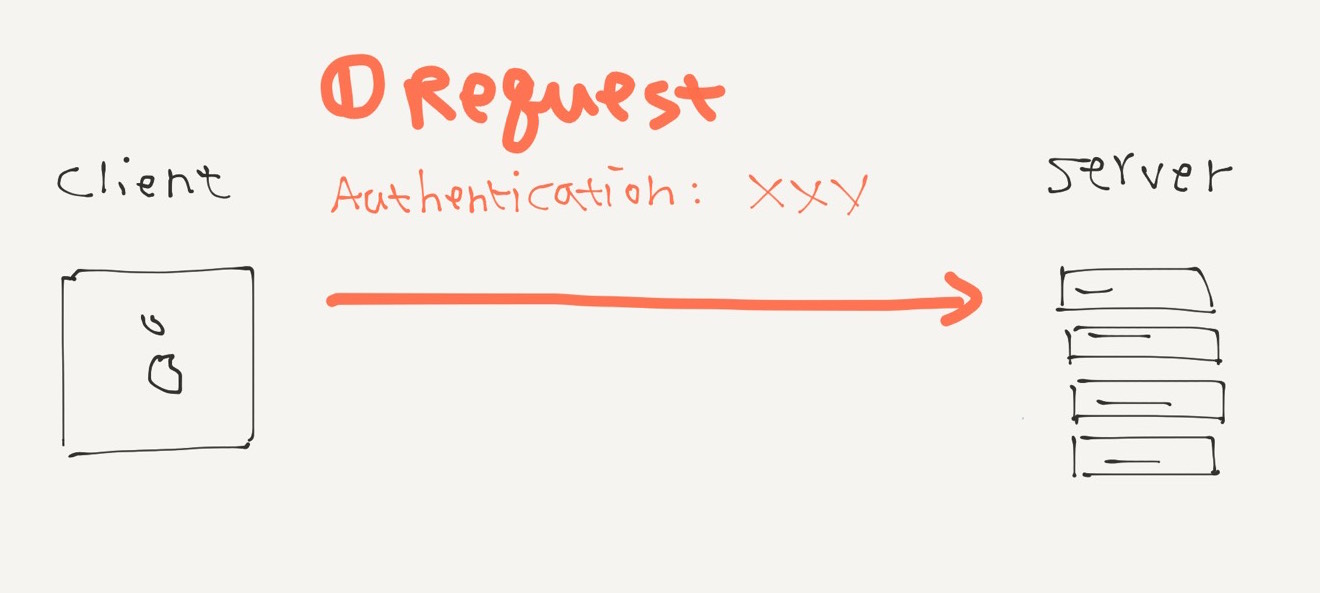 ① Request
Client
Authentication: XXY
Server